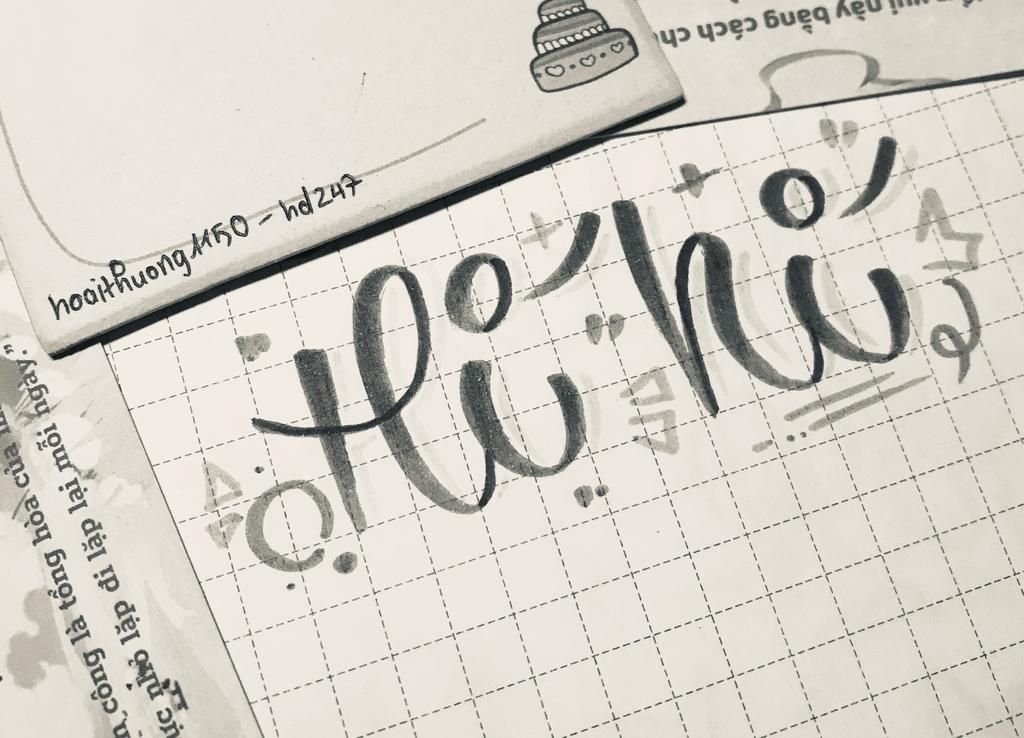 vui này bằng cách
hoaithuong1150 - hd247
Hí hí
công là tổng hòa của
nhỏ lặp đi lặp lại mỗi ngày.”